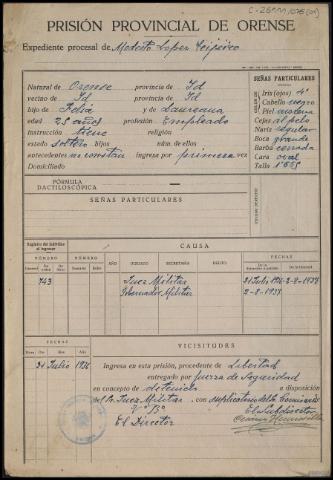 C-26911/1076 (01)
PRISIÓN PROVINCIAL DE ORENSE
Expediente procesal de Modesto López
Natural de Orense provincia de Id
vecino de Id provincia de Id
hijo de Felix y de Laureana
edad 25 años profesión Empleado
instrucción tiene religión
estado soltero hijos núm. de ellos
antecedentes no constan ingresa por primera vez
Domiciliado
SEÑAS PARTICULARES
Iris (ojos) 4º
Cabello negro
Piel morena
Cejas al pelo
Nariz regular
Boca grande
Barba cerrada
Cara oval
Talla 1'665
FÓRMULA
DACTILOSCÓPICA
SEÑAS PARTICULARES
CAUSA
NÚMERO
NÚMERO
AÑO
JUZGADO
SECRETARÍA
DELITO
FECHAS
FECHAS
743
Juez Militar
Gobernador Militar
2-8-1937
VICISITUDES
FECHAS
Día
Mes
Año
31 Julio 1936
Ingresa en esta prisión, procedente de Libertad
entregado por fuerza de Seguridad
en concepto de detenido a disposición
del Sr. Juez Militar con duplicatorio de la Comisaría
Vº Bº
El Subdirector
El Director